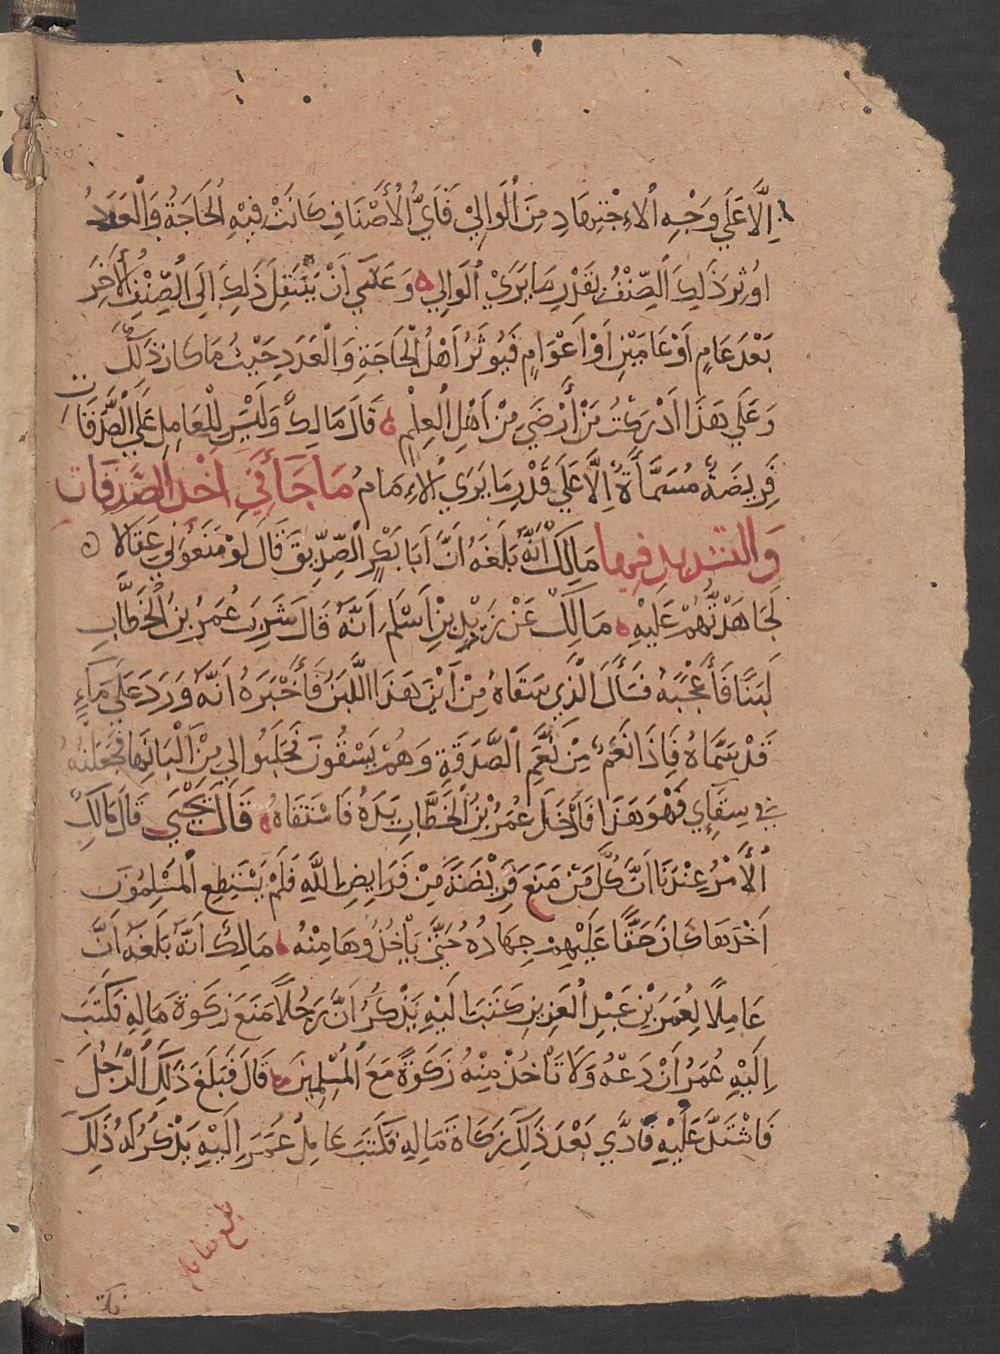 إِلَّا عَلَي وَجْهِ الْاِجْتِهَادِ مِنَ الْوَالِيْ فَأَيُّ الْأَصْنَافِ كَانَتْ فِيْهِ الْحَاجَةُ وَالْعَدَدُ
اُوْثِرَ ذَلِكَ الصِّنْفُ بِقَدْرِ مَا يَرَيْ الْوَالِي ه وَعَسَي أَنْ يَنْتَقِلَ ذَلِكَ اِلَي الصِّنْفِ الْأَخَرِ
بَعْدَ عَامٍ أَوْ عَامَيْنِ اَوْ اَعْوَامٍ فَيُوثَرُ اَهْلُ الْحَاجَةِ وَالْعَدَدِ حَيْثُ مَا كَانَ ذَلِكَ
وَعَلَي هَذَا اَدْرَكْتُ مَنْ أَرْضَي مِنْ اَهْلِ الْعِلْمِ ه قَالَ مَالِكٌ وَلَيْسَ لِلْعَامِلِ عَلَي الصَّدَقَاتِ
فَرِيضَةٌ مُسَمَّاةٌ اِلَّا عَلَي قَدْرِ مَا يَرَي الْاِمَامُ مَا جَأَ فِي اَخْذِ الصَّدَقَاتِ
وَالتشديد فيها مَالِكٌ أَنَّهُ بَلَغَهُ اَنَّ اَبَا بَكْرٍ الصِّدِّيْقَ قَالَ لَوْ مَنَعُوْنِي عِقَالًا ه
لَجَاهَدْتُّهُمْ عَلَيْهِ ه مَالِكٌ عَنْ زَيْدِ بْنِ اَسْلَمَ اَنَّهُ قَالَ شَرِبَ عُمَرُ بْنُ الْخَطَّابِ
لَبَنًا فَأَعْجَبَهُ فَسَأَلَ الَّذِي سَقَاهُ مِنْ اَيْنَ هَذَا اللَّبَنُ فَأَخْبَرَهُ اَنَّهُ وَرَدَ عَلَي مَاءٍ
قَدْ سَمَّاهُ فَاِذَا نَعَمٌ مِنْ نَعَمِ الصَّدَقَةِ وَهُمْ يَسْقُوْنَ فَحَلَبُوا لِي مِنْ اَلْبَانِهَا فَجَعَلْتُهُ
فِي سِقَاءِي فَهُوَ هَذَا فَأَدْخَلَ عُمَرُ بْنُ الْخَطَّابِ يَدَهُ فَاسْتَقَاهُ ه قَالَ يَحْيَي قَالَ مَالِكٌ
الْأَمْرُ عِنْدَنَا اَنَّ كُلَّ مَنْ مَنَعَ فَرِيْضَةً مِنْ فَرَايِضِ اللَّهِ فَلَمْ يَسْتَطِعِ الْمُسْلِمُوْنَ
اَخْذَهَا كَانَ حَقًّا عَلَيْهِمْ جِهَادُهُ حَتَّي يَأْخُذُوْهَا مِنْهُ ه مَالِكٌ اَنَّهُ بَلَغَهُ اَنَّ
عَامِلًا لِعُمَرَ بْنِ عَبْدِ الْعَزِيزِ كَتَبَ اِلَيْهِ يَذْكُرُ اَنَّ رَجُلًا مَنَعَ زَكَوةَ مَالِهِ فَكَتَبَ
اِلَيْهِ عُمَرُ اَنْ دَعْهُ وَلَا تَأْخُذْ مِنْهُ زَكَوةً مَعَ الْمُسْلِمِيْنَ ه قَالَ فَبَلَغَ ذَلِكَ الرَّجُلَ
فَاشْتَدَّ عَلَيْهِ فَأَدَّي بَعْدَ ذَلِكَ زَكَاةَ مَالِهِ فَكَتَبَ عَامِلُ عُمَرَ اِلَيْهِ يَذْكُرُ لَهُ ذَلِكَ